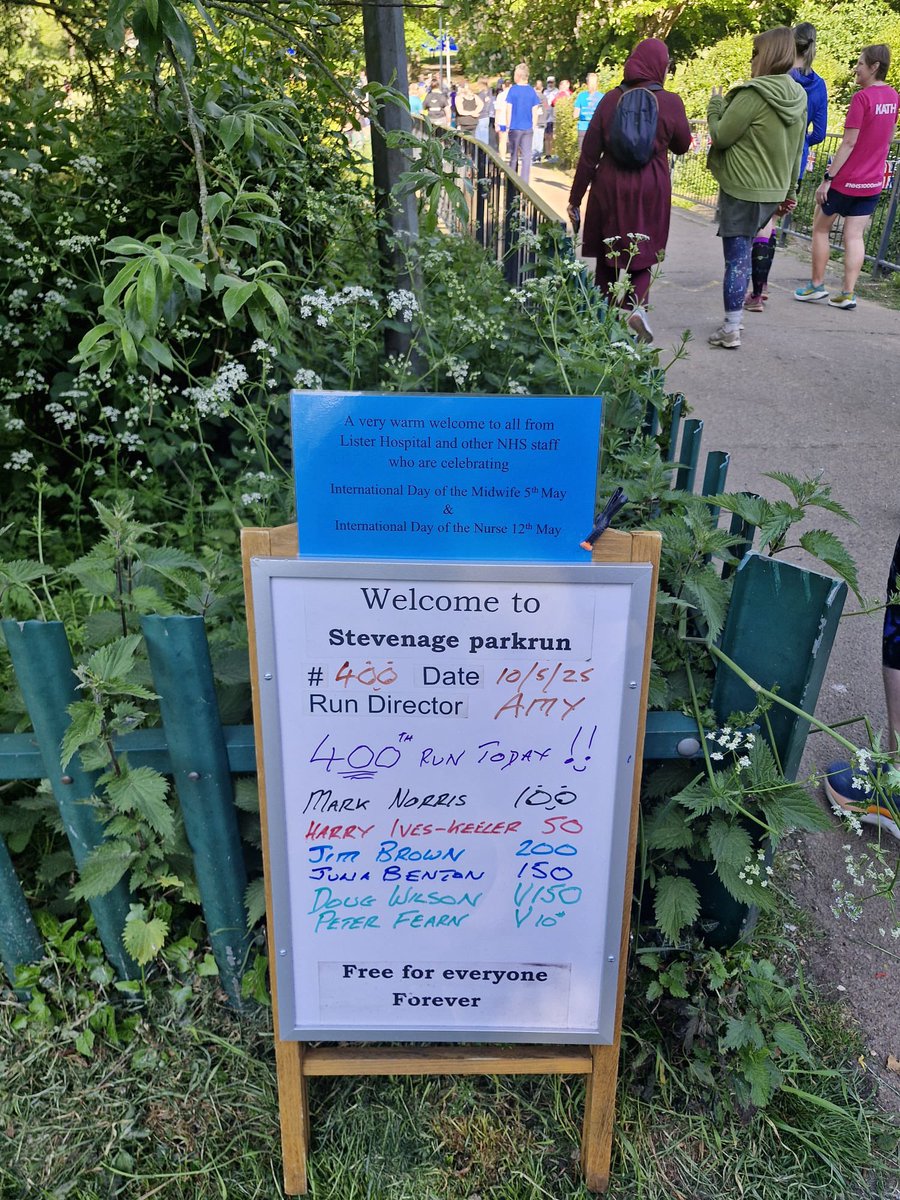 KATH
A very warm welcome to all from
Lister Hospital and other NHS staff
who are celebrating
International Day of the Midwife 5th May
&
International Day of the Nurse 12th May
Welcome to
Stevenage parkrun
# 400 Date 10/5/25
Run Director AMY
400TH RUN TODAY !!
MARK NORRIS 100
HARRY IVES-KEELER 50
JIM BROWN 200
JUNA BENTON 150
DOUG WILSON V150
PETER FEARN V10
Free for everyone
Forever